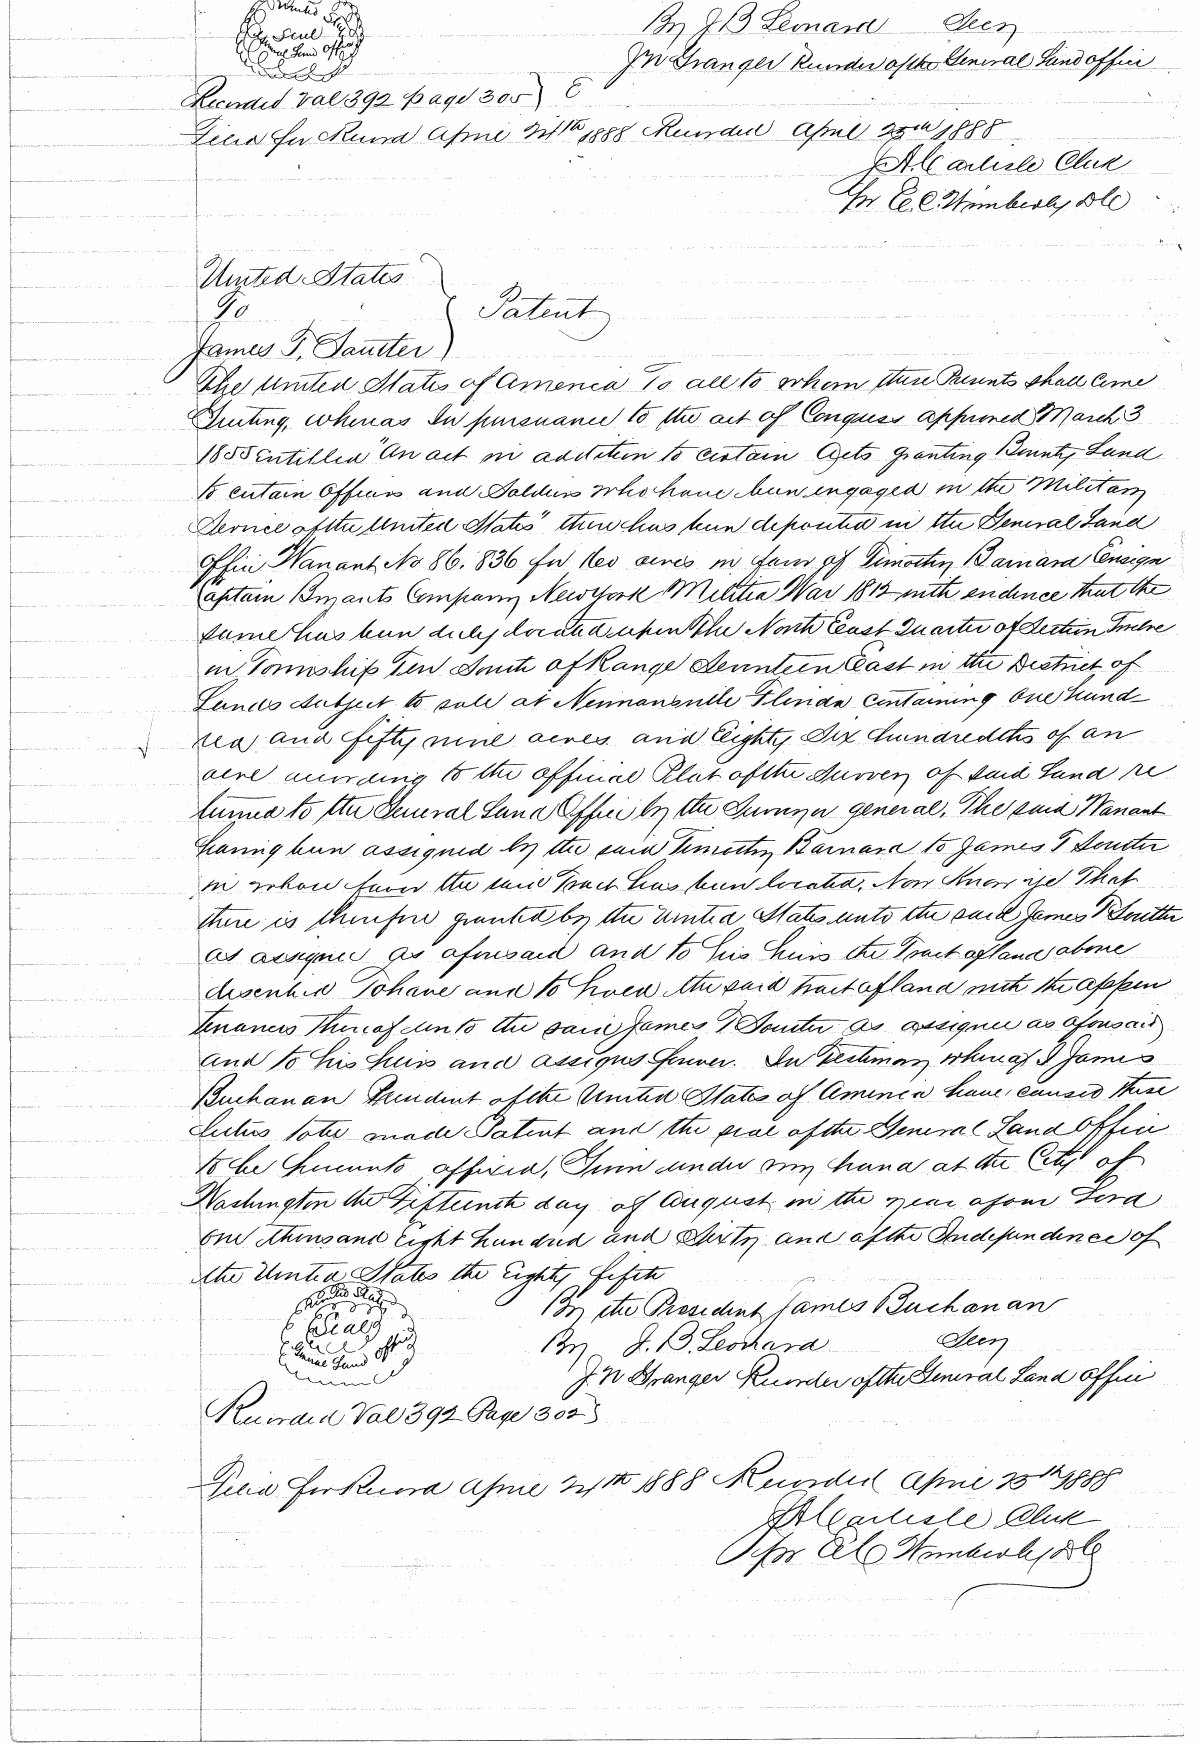 United St
Seal
General Land office
By J B Leonard Secy
J N Granger Recorder of the General Land office
Recorded Vol 392 page 305
Filed for Record April 24th 1888 Recorded April 25th 1888
J A Carlisle Clerk
pr E. C. Wimberly DC
United States
To
Patent
James T. Soutter
The United States of America To all to whom these Presents shall Come
Greeting, whereas In pursuance to the act of Congress approved March 3
1855 entitled "An act in addition to certain Acts granting Bounty Land
to certain Officers and Soldiers who have been engaged in the Military
Service of the United States" there has been deposited in the General Land
Office Warrant No 86.836 for 160 acres in favor of Timothy Barnard Ensign
Captain Bryants Company New York Militia War 1812 with evidence that the
same has been duly located upon The North East Quarter of Section Twelve
in Township Ten South of Range Seventeen East in the District of
Lands subject to sale at Newnansville Florida containing One hund
red and fifty nine acres and Eighty Six hundredths of an
acre according to the official Plat of the Survey of said Land re
turned to the General Land Office by the Surveyor general. The said Warrant
having been assigned by the said Timothy Barnard to James T Soutter
in whose favor the said Tract has been located. Now Know ye That
there is therefore granted by the United States unto the said James T Soutter
as assignee as aforesaid and to his heirs the Tract of land above
described To have and to hold the said tract of land with the appur
tenances thereof unto the said James T Soutter as assignee as aforesaid
and to his heirs and assigns forever. In Testimony whereof I James
Buchanan President of the United States of America have caused these
Letters to be made Patent and the seal of the General Land Office
to be hereunto affixed, Given under my hand at the City of
Washington the Fifteenth day of August in the year of our Lord
one thousand Eight hundred and Sixty and of the Independence of
the United States the Eighty fifth
United States
Seal
General Land office
By the President James Buchanan
By J. B. Leonard Secy
J N Granger Recorder of the General Land office
Recorded Vol 392 Page 302
Filed for Record April 24th 1888 Recorded April 25th 1888
J A Carlisle Clerk
pr E C Wimberly DC